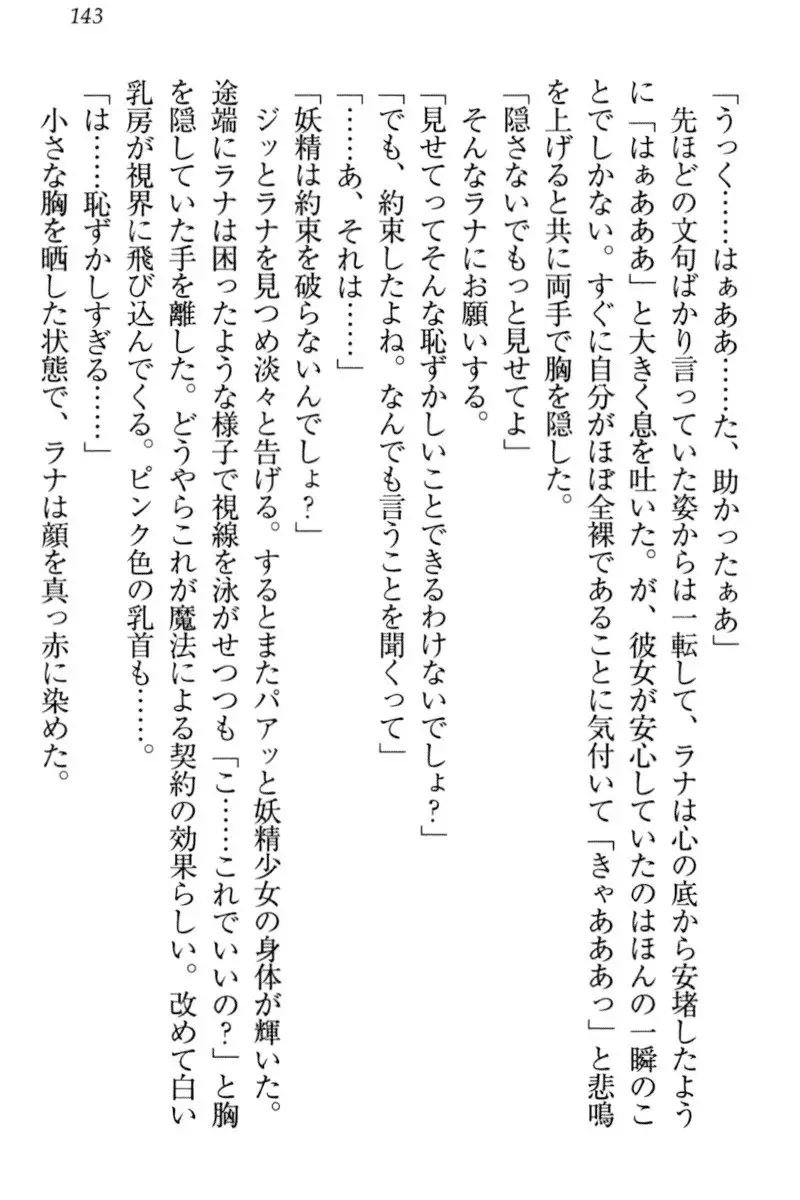 143
「うっく……はぁああ……た、助かったぁあ」
先ほどの文句ばかり言っていた姿からは一転して、ラナは心の底から安堵したよう
に「はぁあああ」と大きく息を吐いた。が、彼女が安心していたのはほんの一瞬のこ
とでしかない。すぐに自分がほぼ全裸であることに気付いて「きゃあああっ」と悲鳴
を上げると共に両手で胸を隠した。
「隠さないでもっと見せてよ」
そんなラナにお願いする。
「見せてってそんな恥ずかしいことできるわけないでしょ？」
「でも、約束したよね。なんでも言うことを聞くって」
「……あ、それは……」
「妖精は約束を破らないんでしょ？」
ジッとラナを見つめ淡々と告げる。するとまたパアッと妖精少女の身体が輝いた。
途端にラナは困ったような様子で視線を泳がせつつも「こ……これでいいの？」と胸
を隠していた手を離した。どうやらこれが魔法による契約の効果らしい。改めて白い
乳房が視界に飛び込んでくる。ピンク色の乳首も……。
「は……恥ずかしすぎる……」
小さな胸を晒した状態で、ラナは顔を真っ赤に染めた。